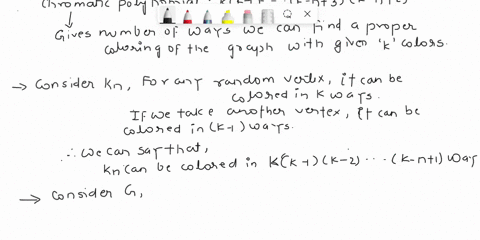 Chromatic polynomial
Gives number of ways we can find a proper
coloring of the graph with given 'k' colors.
→ Consider Kn, For any random vertex, it can be
colored in k ways.
If we take another vertex, it can be
colored in (k-1) ways.
∴ we can say that,
Kn can be colored in k(k-1)(k-2) ... (k-n+1) way
→ Consider G,